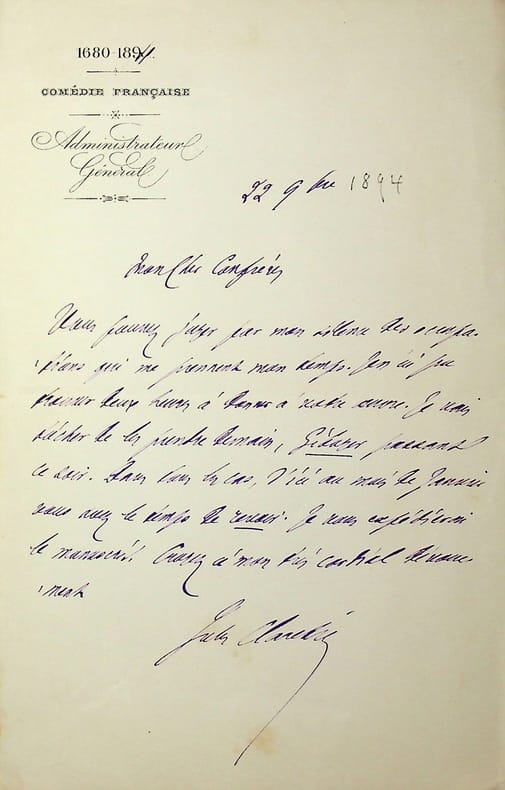 1680-1894
COMÉDIE FRANÇAISE
Administrateur
Général
22 9bre 1894
Mon cher Confrère,
Vous pouvez juger par mon silence des occupa-
-tions qui me prennent mon temps. Je n'ai pu
trouver deux heures à donner à votre œuvre. Je vais
tâcher de les prendre demain, passant
ce soir. Dans tous les cas, d'ici au mois de Janvier
vous avez le temps de revoir. Je vous expédierai
le manuscrit. Croyez à mon très cordial dévoue-
-ment
Jules Claretie